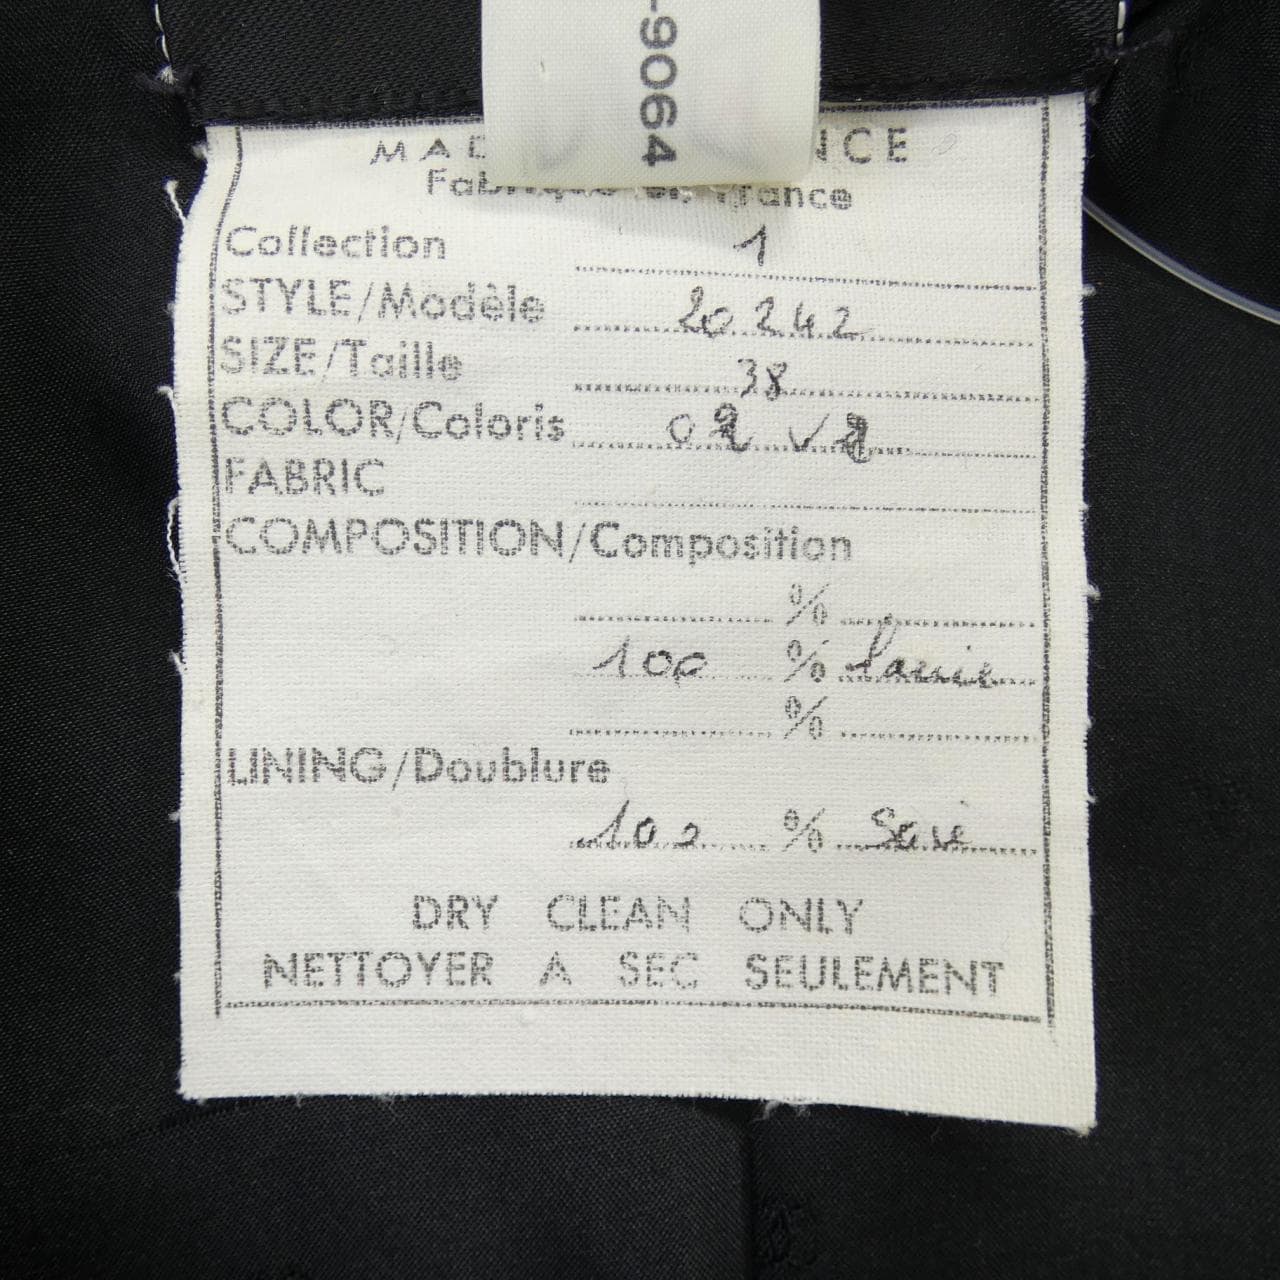 -9064
MADE NCE
Fabrique en France
Collection 1
STYLE/Modèle 20242
SIZE/Taille 38
COLOR/Coloris 02
FABRIC
COMPOSITION/Composition
%
100 %
%
LINING/Doublure
100 % Soie
DRY CLEAN ONLY
NETTOYER A SEC SEULEMENT